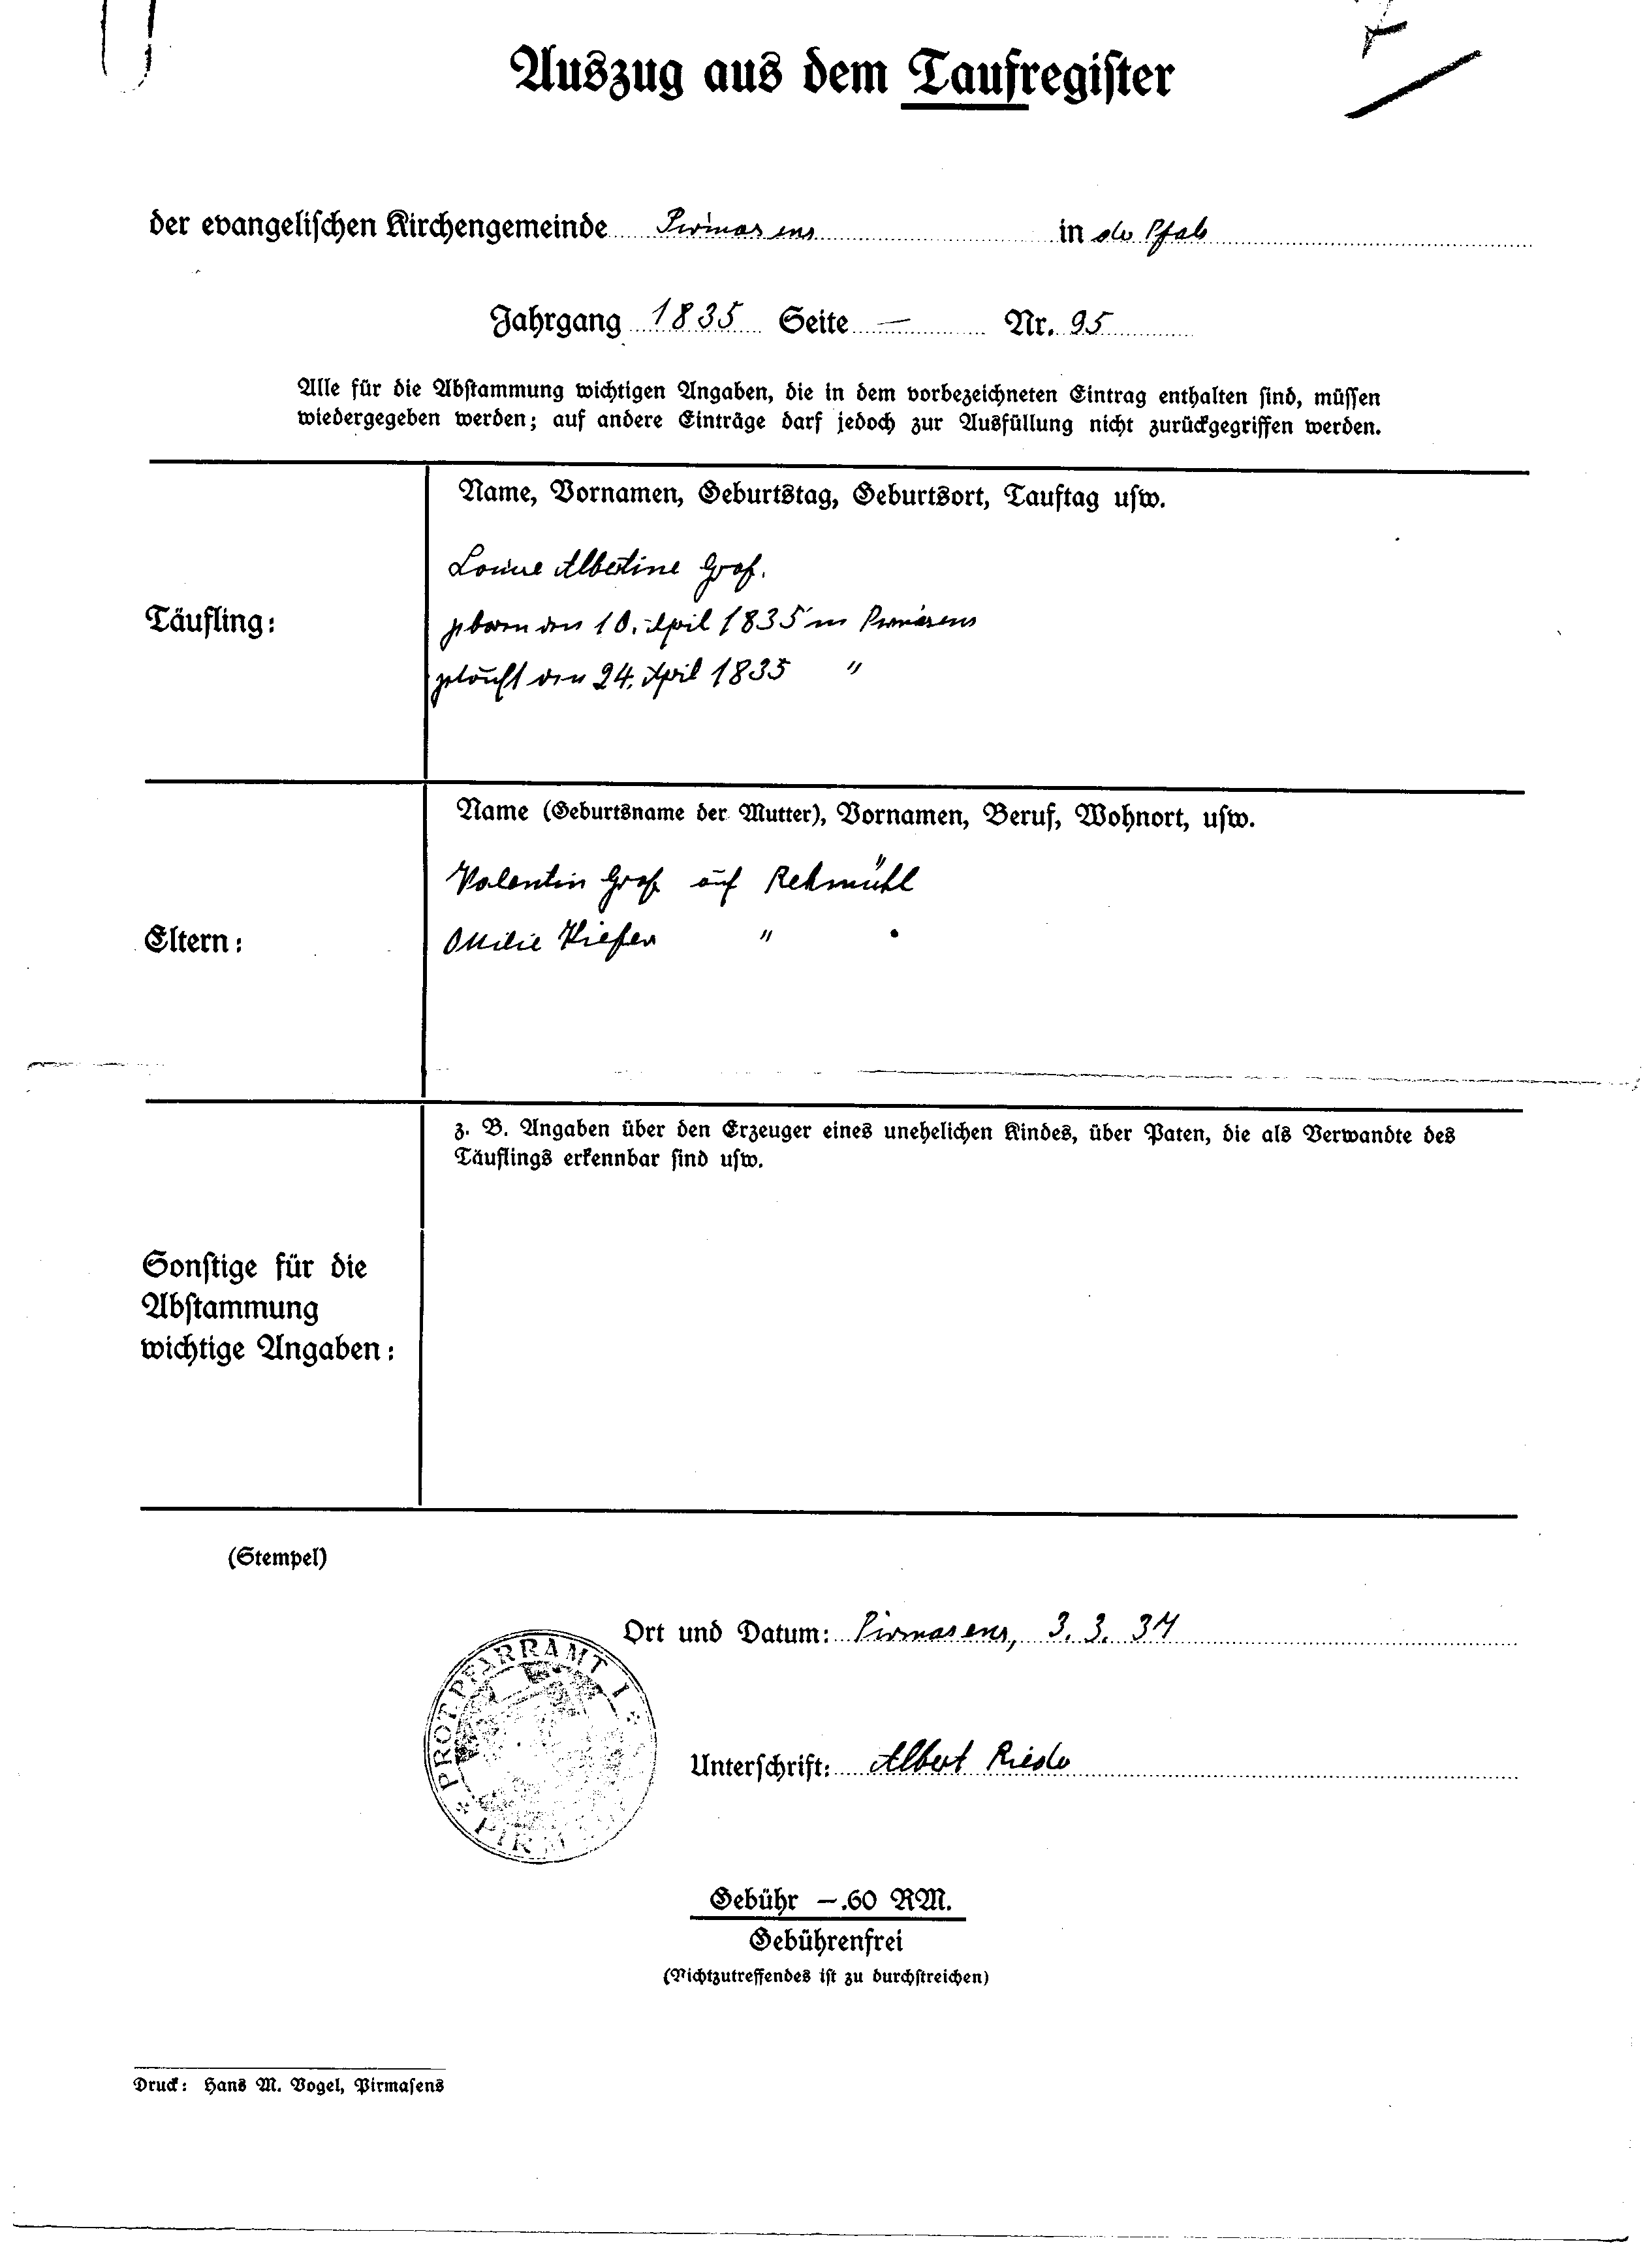 Auszug aus dem Taufregister
der evangelischen Kirchengemeinde Pirmasens in der Pfalz
Jahrgang 1835 Seite — Nr. 95
Alle für die Abstammung wichtigen Angaben, die in dem vorbezeichneten Eintrag enthalten sind, müssen
wiedergegeben werden; auf andere Einträge darf jedoch zur Ausfüllung nicht zurückgegriffen werden.
Name, Vornamen, Geburtstag, Geburtsort, Tauftag usw.
Louise Albertine Graf.
Täufling:
geboren den 10. April 1835 in Pirmasens
getauft den 24. April 1835 "
Name (Geburtsname der Mutter), Vornamen, Beruf, Wohnort, usw.
Valentin Graf auf Rehmühl
Eltern:
Ottilie Kiefer "
z. B. Angaben über den Erzeuger eines unehelichen Kindes, über Paten, die als Verwandte des
Täuflings erkennbar sind usw.
Sonstige für die
Abstammung
wichtige Angaben:
(Stempel)
Ort und Datum: Pirmasens, 3. 3. 34
PROT. PFARRAMT I
Unterschrift: Albert Riede
Gebühr —.60 RM.
Gebührenfrei
(Nichtzutreffendes ist zu durchstreichen)
Druck: Hans M. Vogel, Pirmasens